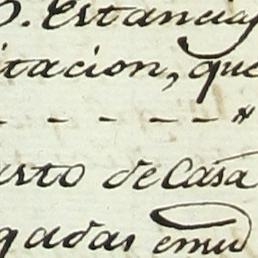 D. Estancias
itacion, que
- - - - - - - "
arto de Casa
gadas emu